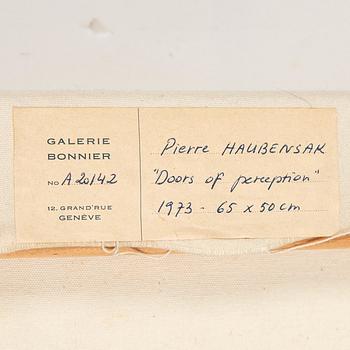 GALERIE
BONNIER
NO A 20142
12, GRAND'RUE
GENÈVE
Pierre HAUBENSAK
"Doors of perception"
1973 - 65 x 50 cm